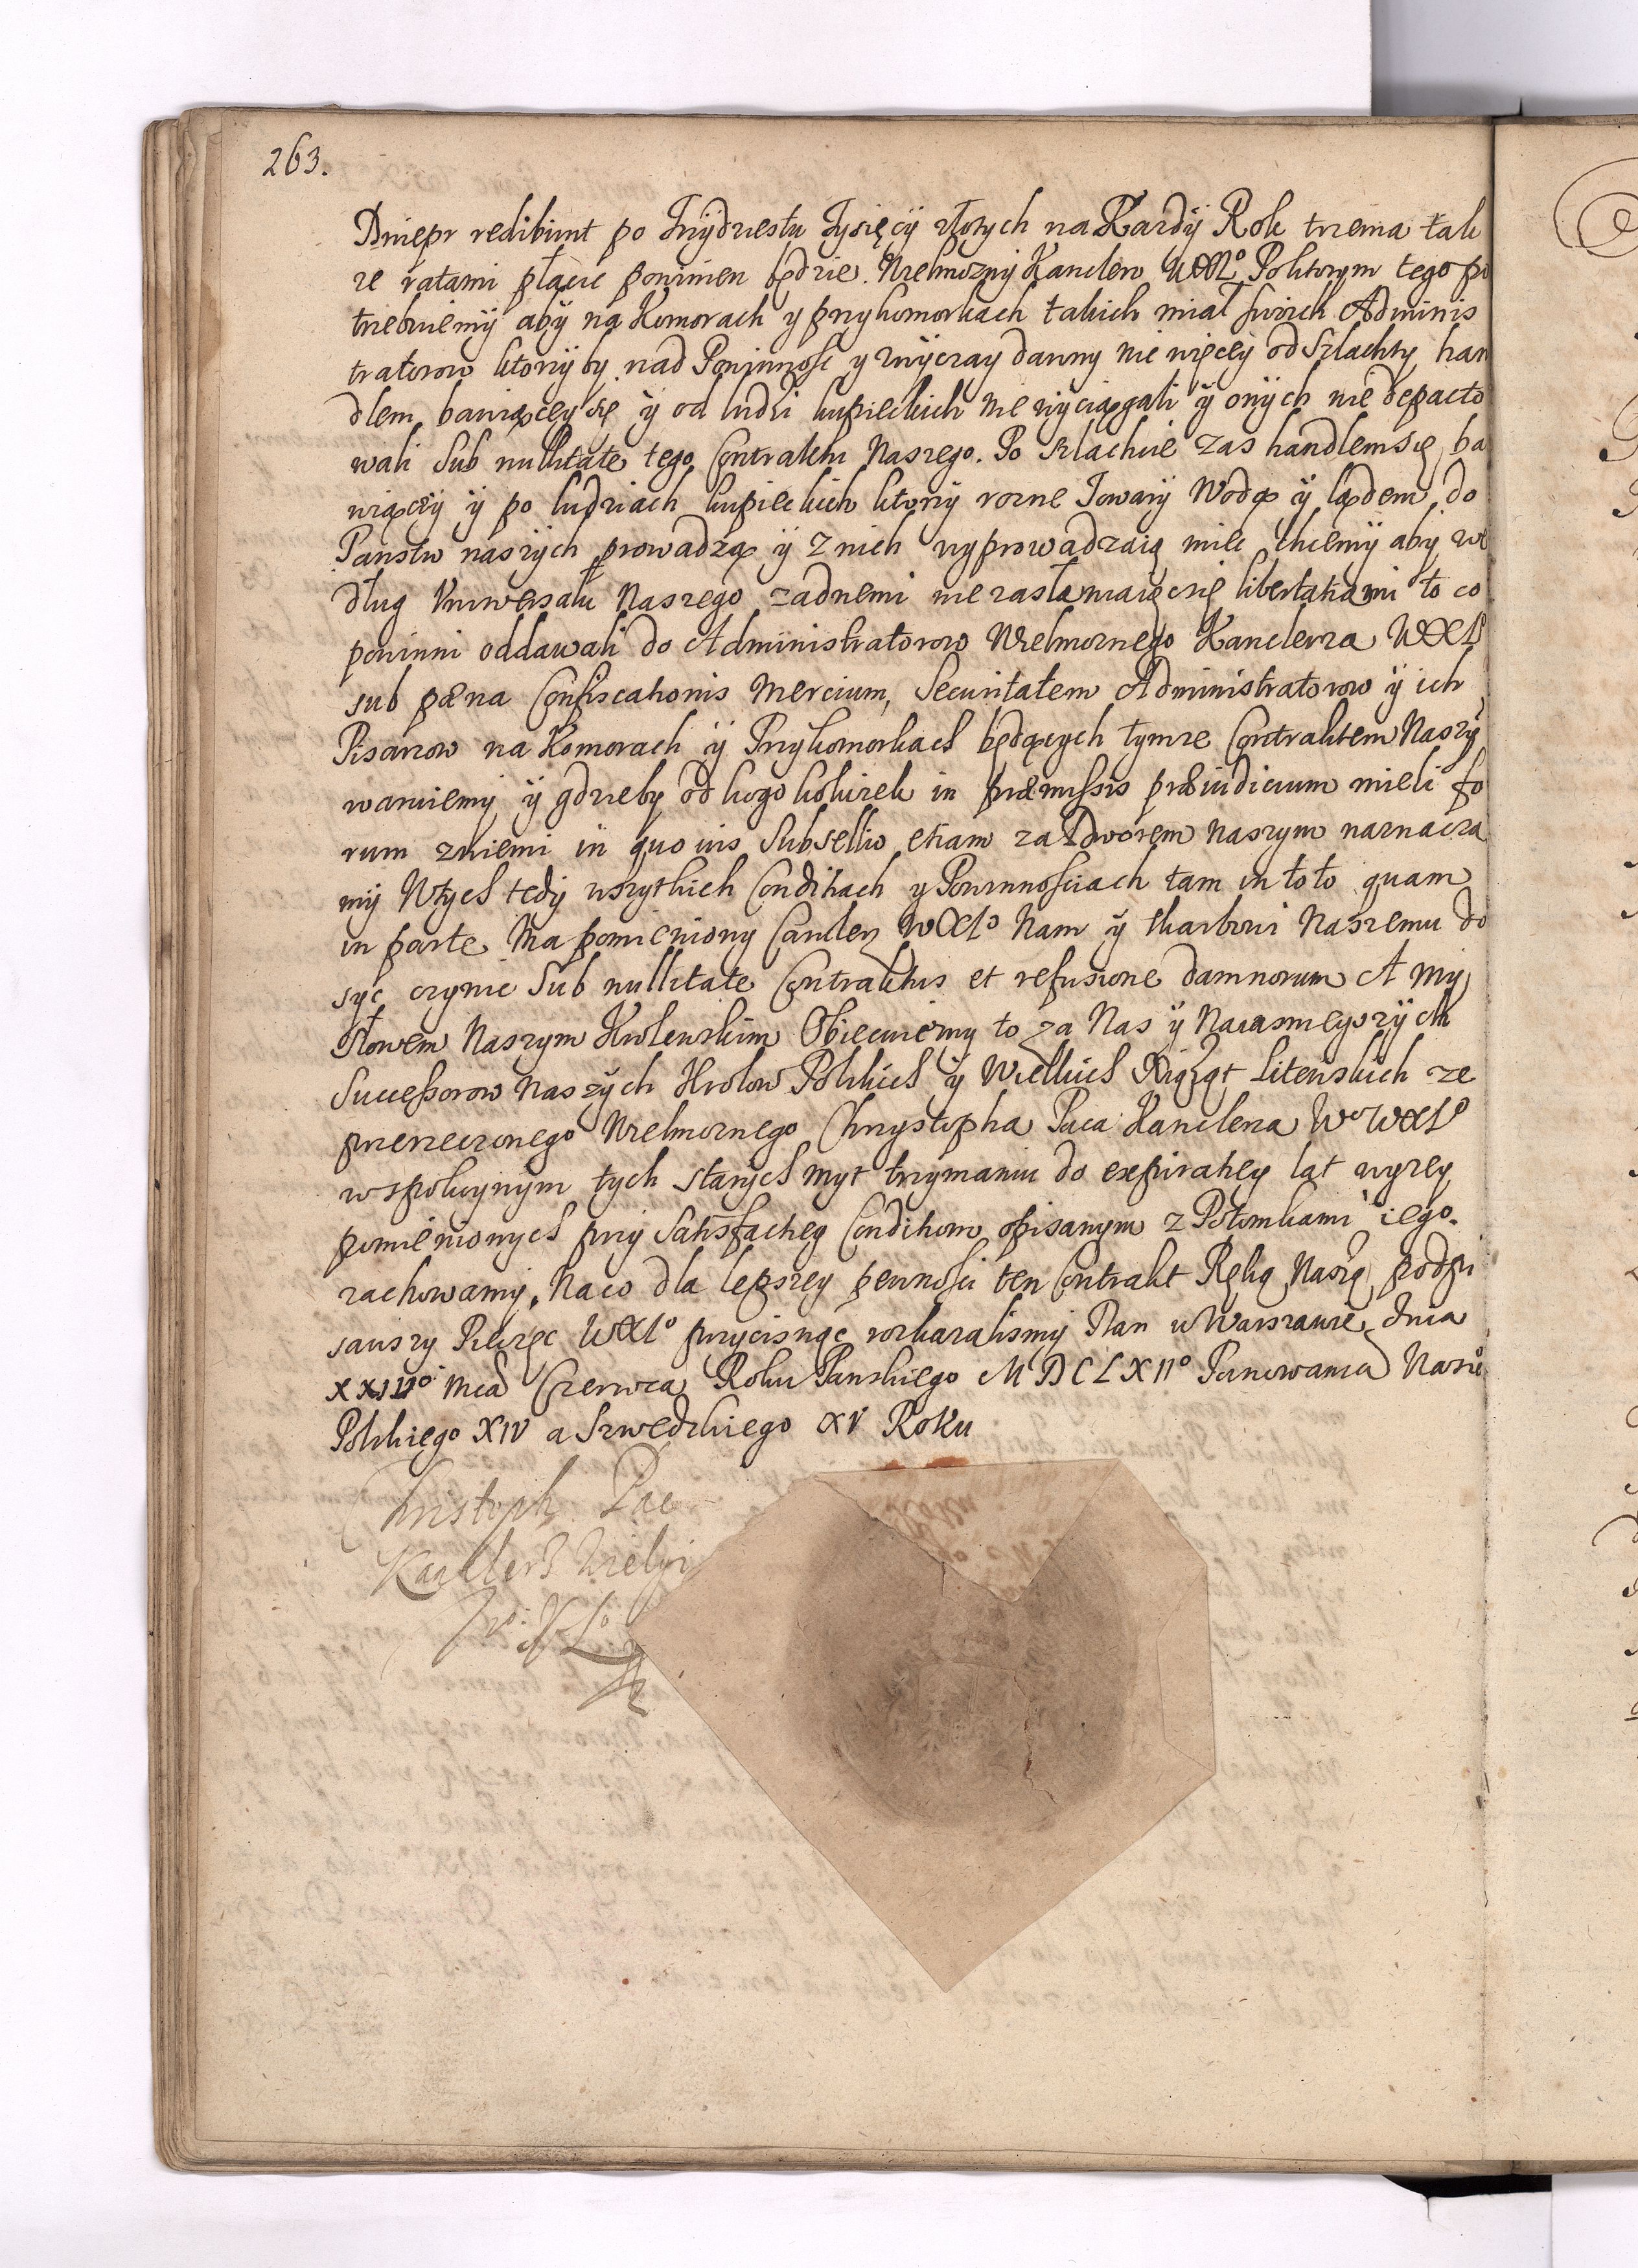 263.
Dniepr redibunt po Trzydziestu Tysięcy złotych na Kazdÿ Rok trzema takie
ze ratami płacic powinien będzie. Wielmoznÿ Kanclerz WXLº Po ktorym tego po
trzebuiemÿ abÿ na Komorach y przykomorkach takich miał swoich Adminis
tratorow ktorzÿ by nad Powinnosc y zwÿczay dawny nie więcey od Szlachty han
dlem bawiącey się ÿ od ludzi kupieckich nie wyciągali ÿ onÿch nie depacto
wali sub nullitate tego Contraktu Naszego. Po szlachcie zas handlem się ba
wiącÿ ÿ po ludziach kupieckich ktorzÿ rozne Towarÿ Wodą ÿ lądem do
Panstw naszÿch prowadzą ÿ z nich wyprowadzaią miec chcemÿ abÿ we
dług Vniwersału Naszego zadnemi nie zasłaniaiąc się libertatiami to co
powinni oddawali do Administratorow Wielmoznego Kanclerza WXLº
sub pœna Confiscationis Mercium, Securitatem Administratorow ÿ ich
Pisarzow na Komorach ÿ Przykomorkach będącÿch tymze Contraktem Naszÿ
waruiemy ÿ gdzieby od kogo kolwiek in præmissis præiudicium mieli fo
rum zniemi in quo vis Subsellio etiam za Dworem naszym naznacza
mÿ Wtych tedÿ wszytkich Conditiach y Powinnosciach tam in toto quam
in parte ma pomieniony Canclerz WXLº Nam ÿ skarbowi Naszemu do
syc czynic sub nullitate Contraktus et refusione damnorum A my
słowem Naszym Krolewskim Obiecuiemy to za Nas ÿ Naiasnieyszÿch
Successorow Naszÿch Krolow Polskich ÿ Wielkich Xiąząt Litewskich ze
przerzeczonego Wielmoznego Chrysztopha Paca Kanclerza Wº WXLº
w spokoynym tych starych myt trzymaniu do expiratiey lat wyzey
pomienionych przÿ Satisfactiey Conditiom opisanym z Potomkami iego
zachowamy. Na co dla lepszey pewnosci ten Contrakt Ręką Naszą podpi
sawszy Pieczęc WXLº przycisnąc roskazalismy Dan w Warszawie dnia
XXIIIIº mca Czerwca Roku Panskiego MDCLXIIº Panowania Naszeº
Polskiego XIV a Szwedzkiego XV Roku
Christoph Pac
Kanclerz Wielgi
W: X Lº